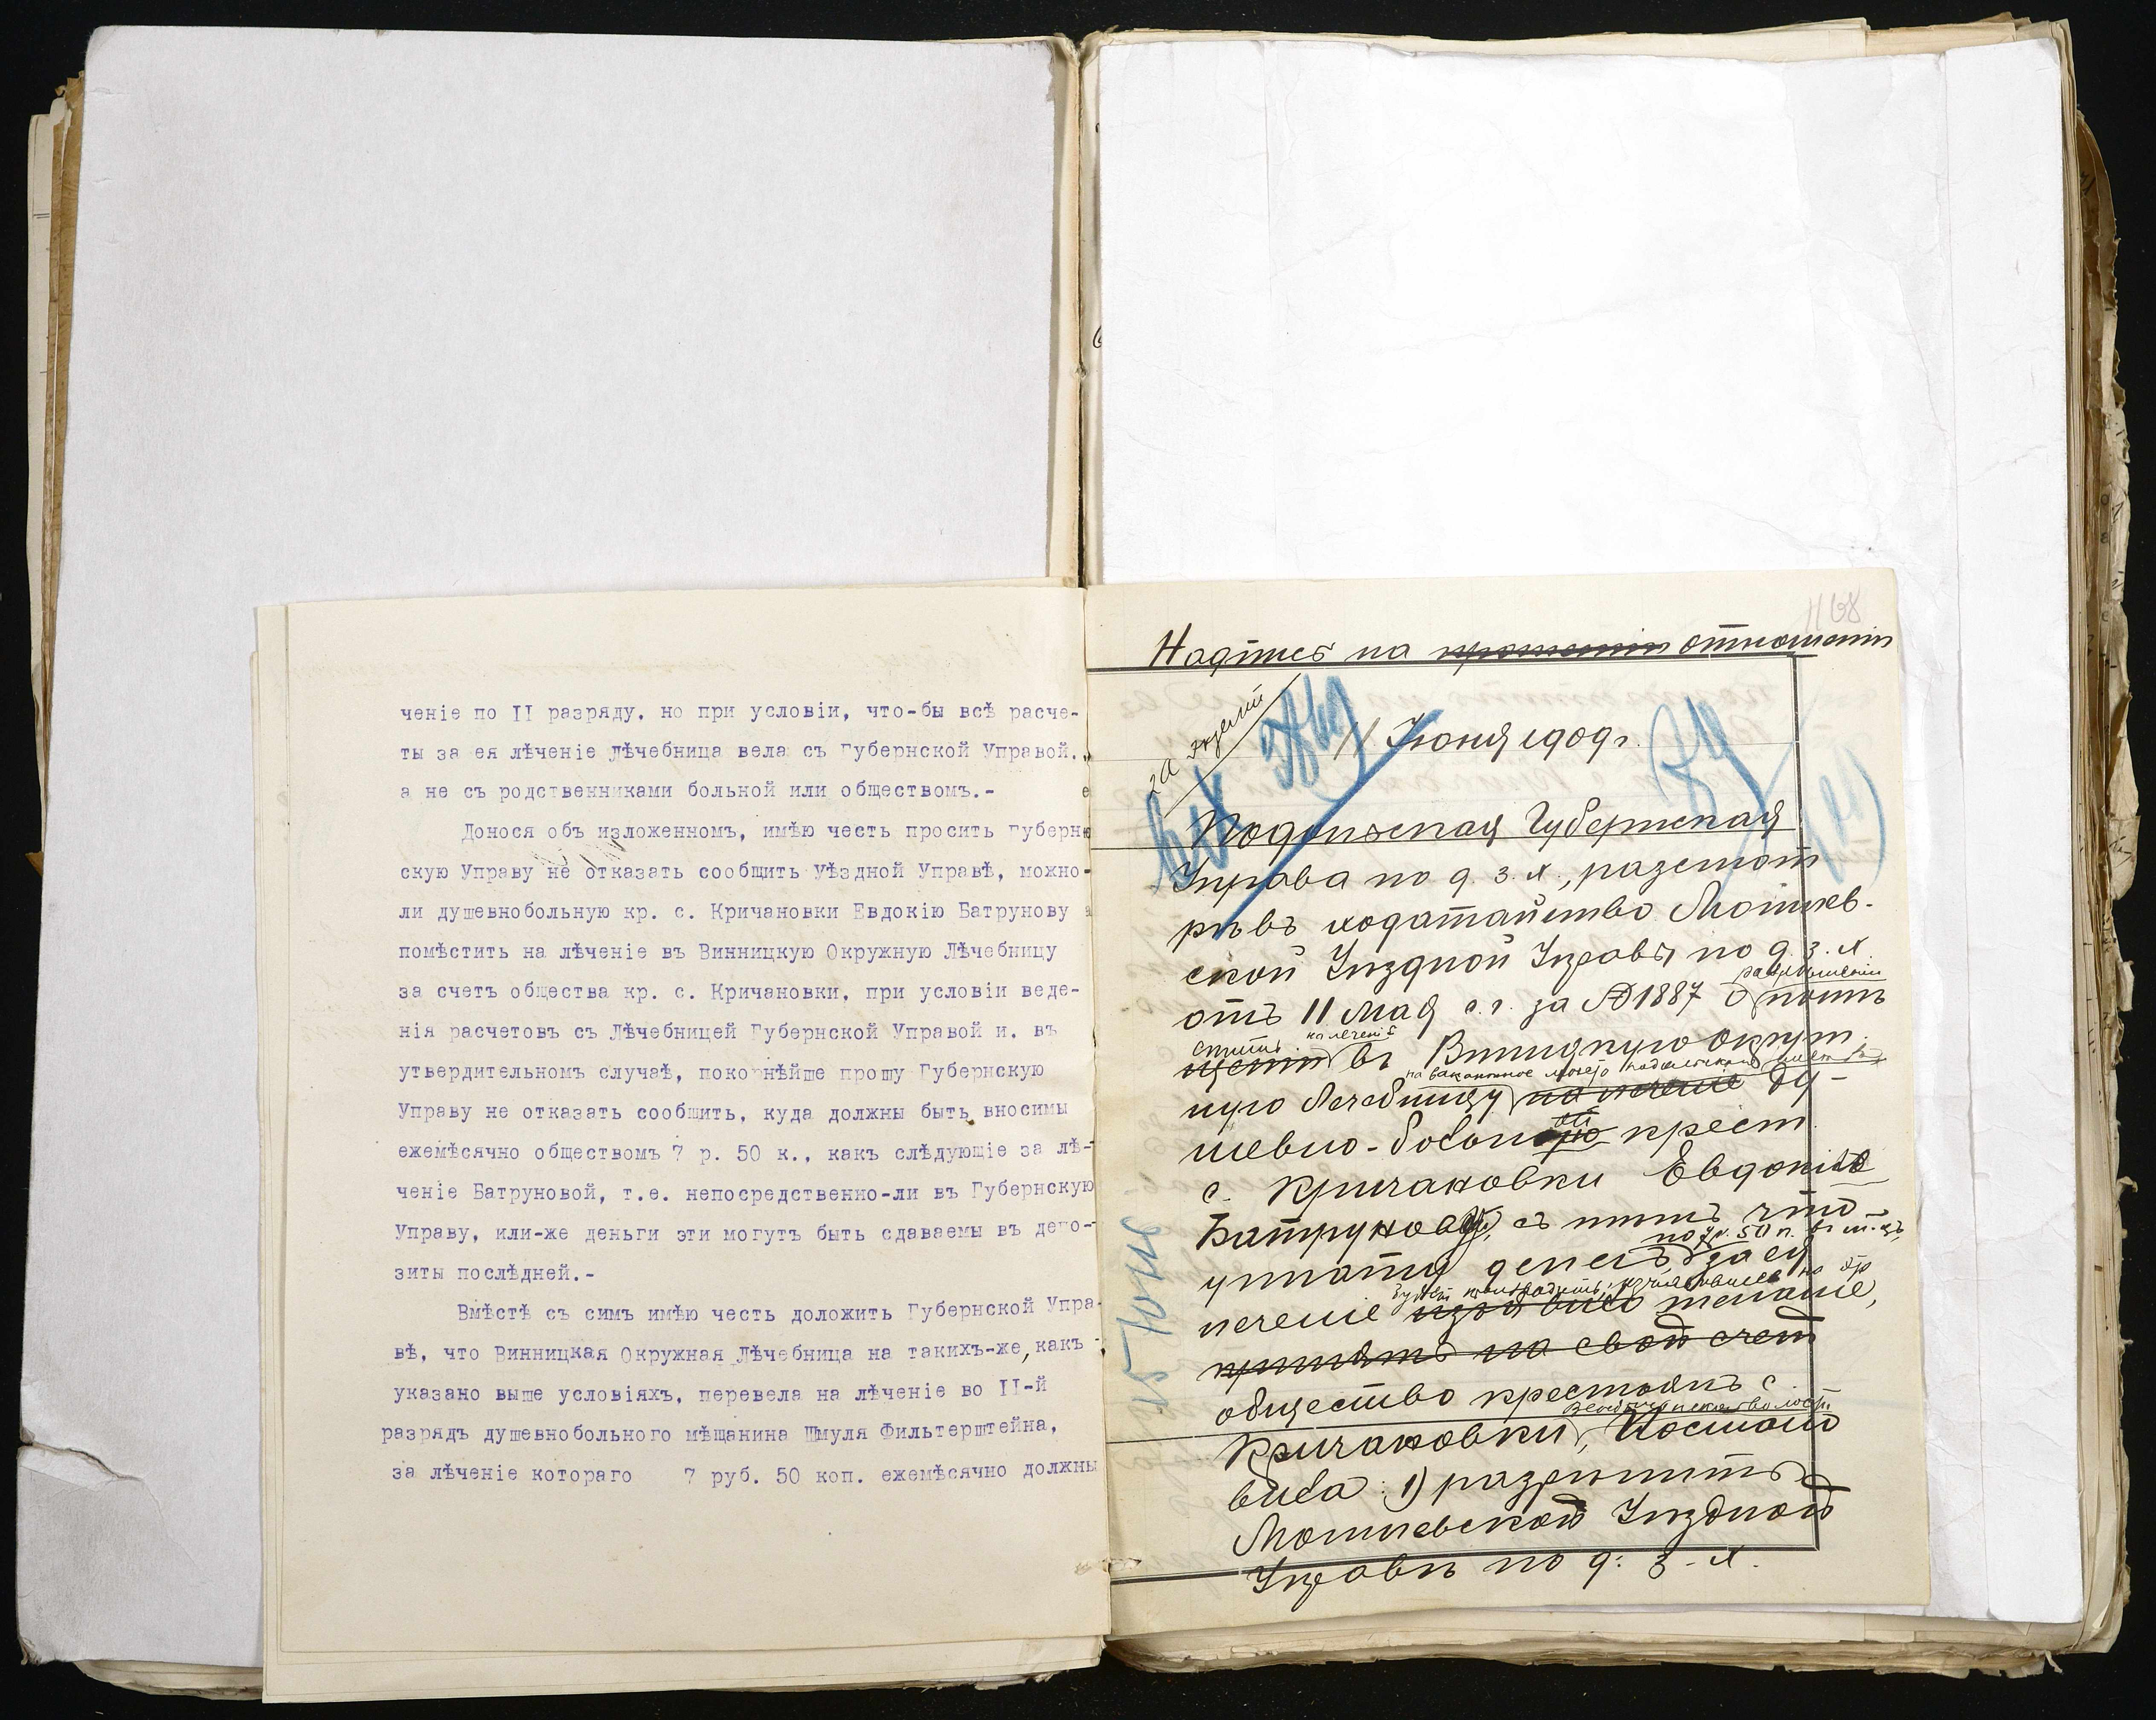 ченіе по II разряду, но при условіи, что-бы всѣ расче-
ты за ея лѣченіе Лѣчебница вела съ Губернской Управой,
а не съ родственниками больной или обществомъ.-
Донося объ изложенномъ, имѣю честь просить Губерн
скую Управу не отказать сообщить Уѣздной Управѣ, можно-
ли душевнобольную кр. с. Кричановки Евдокію Батрунову
помѣстить на лѣченіе въ Винницкую Окружную Лѣчебницу
за счетъ общества кр. с. Кричановки, при условіи веде-
нія расчетовъ съ Лѣчебницей Губернской Управой и, въ
утвердительномъ случаѣ, покорнѣйше прошу Губернскую
Управу не отказать сообщить, куда должны быть вносимы
ежемѣсячно обществомъ 7 р. 50 к., какъ слѣдующіе за лѣ-
ченіе Батруновой, т.е. непосредственно-ли въ Губернскую
Управу, или-же деньги эти могутъ быть сдаваемы въ депо-
зиты послѣдней.-
Вмѣстѣ съ симъ имѣю честь доложить Губернской Упра-
вѣ, что Винницкая Окружная Лѣчебница на такихъ-же, какъ
указано выше условіяхъ, перевела на лѣченіе во II-й
разрядъ душевнобольного мѣщанина Шмуля Фильтерштейна,
за лѣченіе котораго 7 руб. 50 коп. ежемѣсячно должны
1168
Надпись на прошеніи отношеніи
11 Іюня 1909 г.
Подольская Губернская
Управа по д. з. х., разсмот
рѣвъ ходатайство Могилев-
ской Уѣздной Управы по д. з. х
разрѣшеніи
отъ 11 Мая с. г. за № 1887 о помѣ
стить на леченіе
щеніи въ Винницкую Окруж
на вакантное мѣсто
ную Лечебницу на леченіе ду-
ой
шевно-больную крест.
с. Кричановки Евдокію
Батрунову, съ тѣмъ что
по 7 р. 50 к. в м-цъ
уплату денегъ за ея
леченіе изъявило желаніе,
принять на свой счет
общество крестьянъ с.
Кричановки, Постано
вила: 1) разрѣшить
Могилевской Уѣздной
Управѣ по д. з. х.
15 Юня